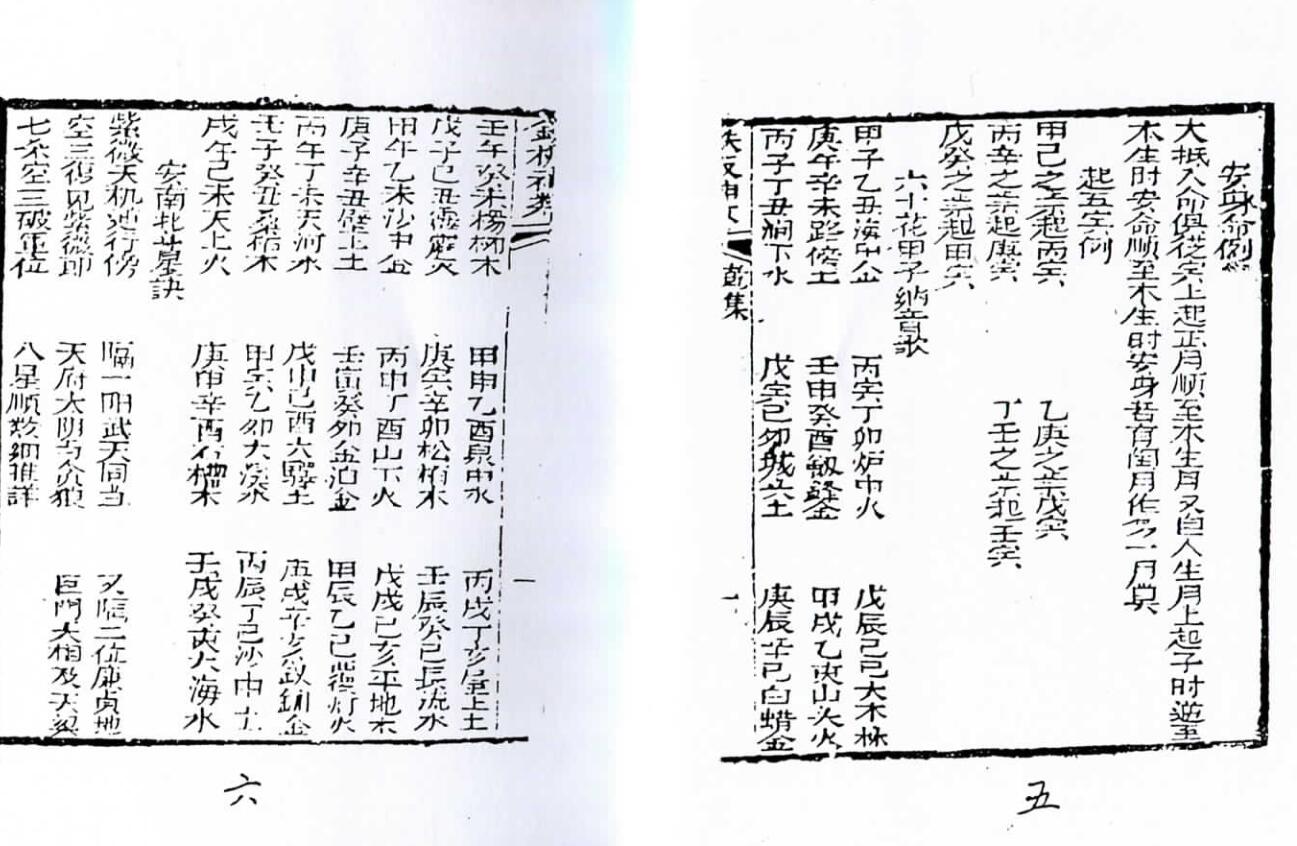 安身命例
大抵人命俱從寅上起正月順至本生月又自人生月上起子時逆至
本生時安命順至本生時安身若有閏月作勿一月算
起五寅例
甲己之年起丙寅 乙庚之年戊寅
丙辛之年起庚寅 丁壬之年起壬寅
戊癸之年起甲寅
六十花甲子納音歌
甲子乙丑海中金 丙寅丁卯炉中火 戊辰己巳大木林
庚午辛未路傍土 壬申癸酉釼鋒金 甲戌乙亥山头火
丙子丁丑澗下水 戊寅己卯城头土 庚辰辛巳白蜡金
乾集
一
壬午癸未楊柳木 甲申乙酉泉中水 丙戌丁亥屋上土
戊子己丑霹靂火 庚寅辛卯松柏木 壬辰癸巳長流水
甲午乙未沙中金 丙申丁酉山下火 戊戌己亥平地木
庚子辛丑壁上土 壬寅癸卯金泊金 甲辰乙巳覆灯火
丙午丁未天河水 戊申己酉大驛土 庚戌辛亥釵釧金
壬子癸丑桑柘木 甲寅乙卯大溪水 丙辰丁巳沙中土
戊午己未天上火 庚申辛酉石榴木 壬戌癸亥大海水
安南北斗星訣
紫微天机逆行傍 隔一阳武天同当 又隔二位廉貞地
空三復見紫微郎 天府太阴与贪狼 巨門天相及天梁
七杀空三破軍位 八星順数細推詳
五
六